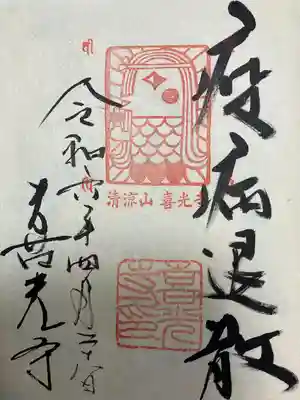 疫病退散
清涼山 喜光寺
令和六年四月二十八日
喜光寺